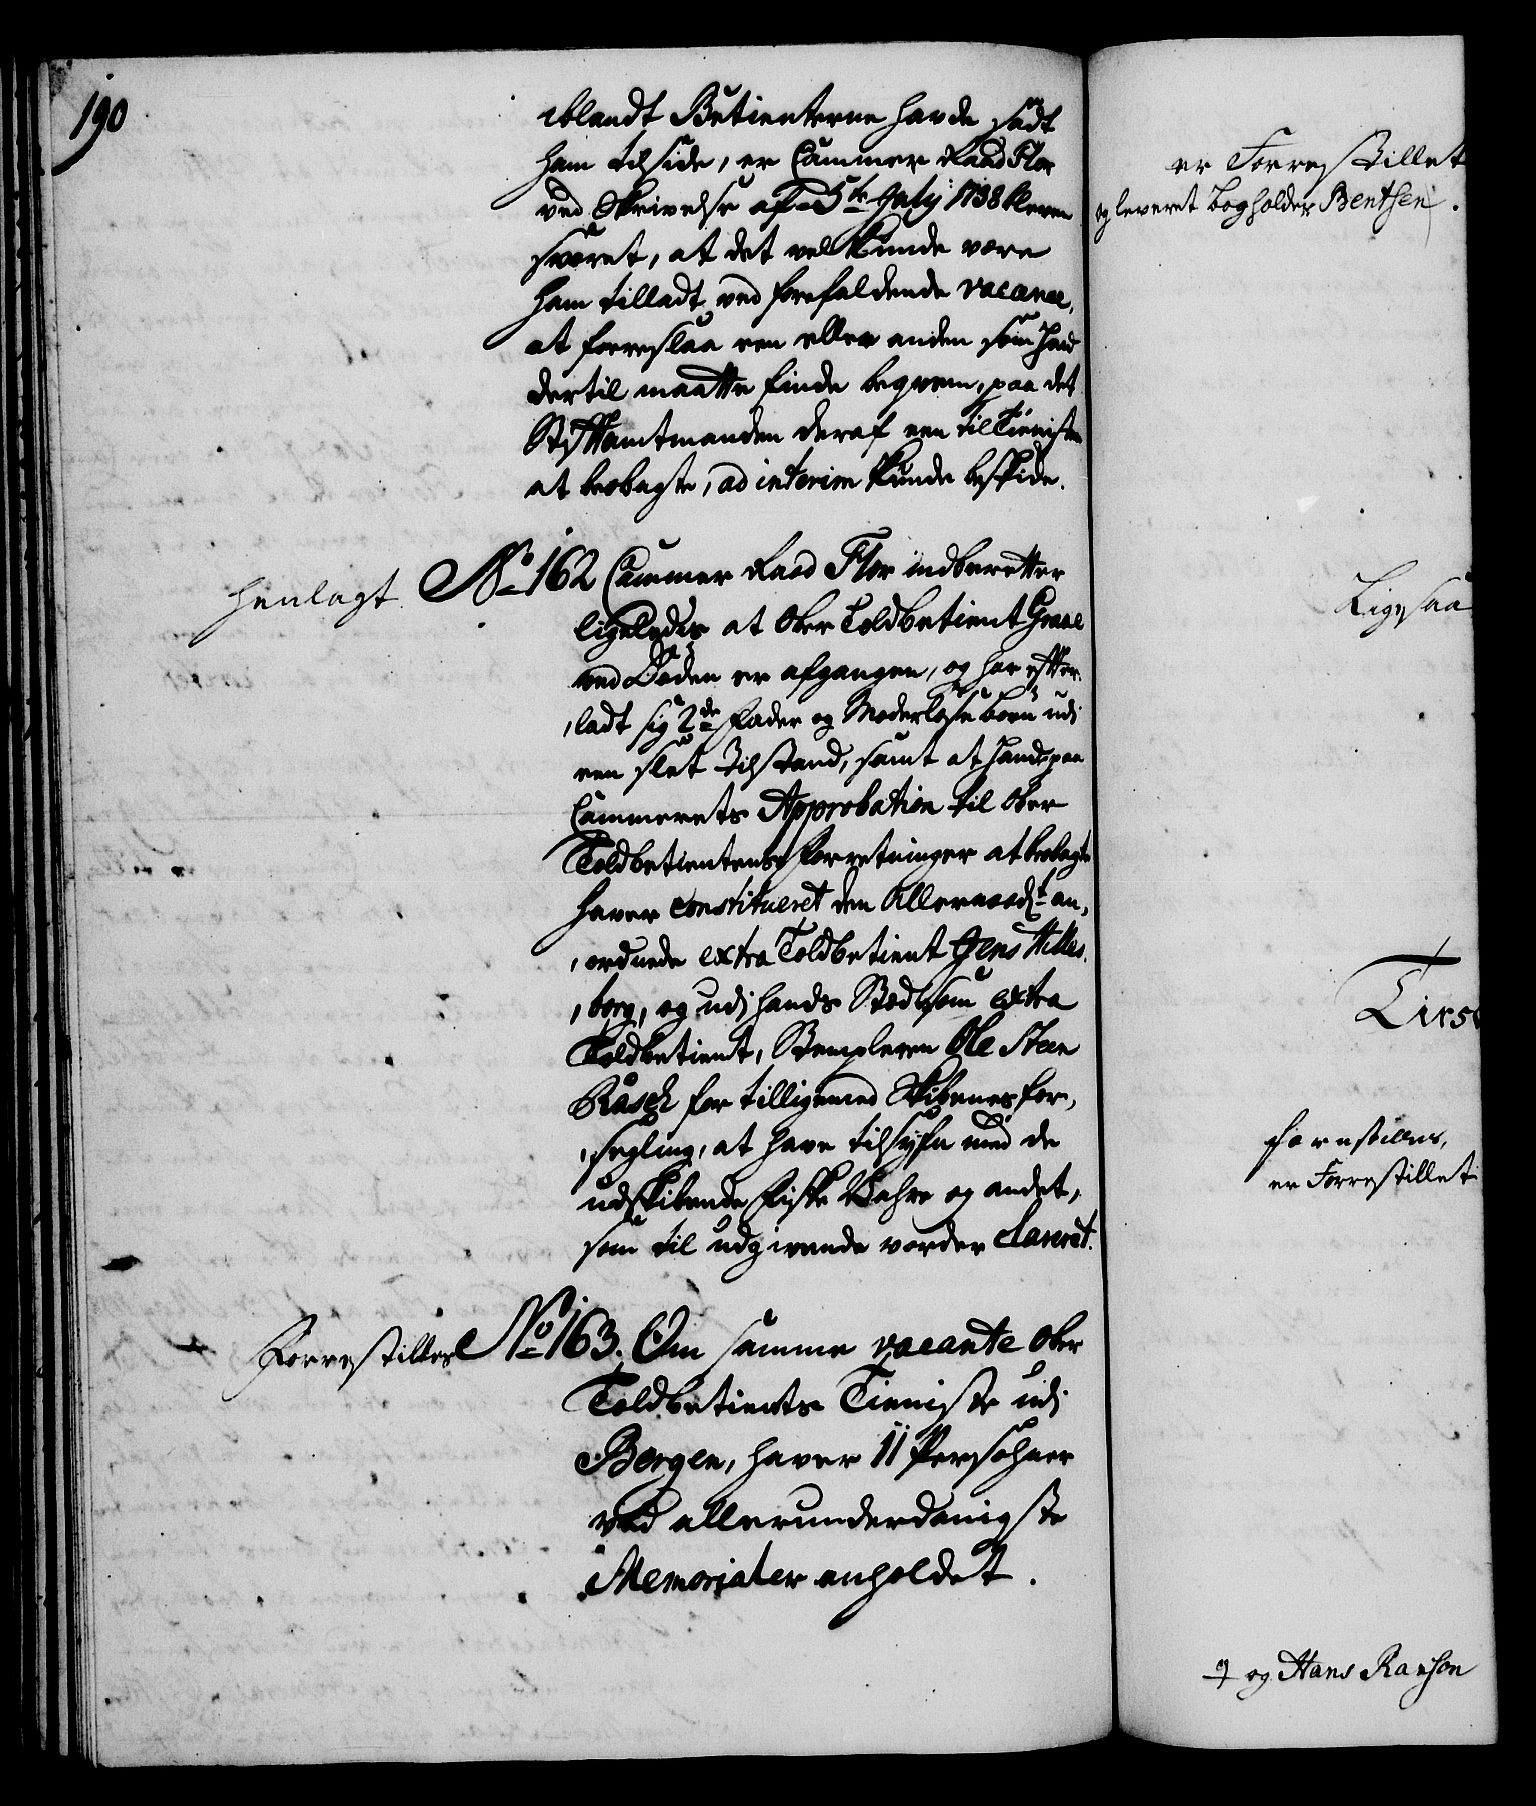 190
iblandt Betienterne havde sadt
ham til side, er Cammer Raad Flor
ved Skrivelse af 5te July 1738 bleven
svaret, at det vel kunde være
ham tilladt ved forefaldende vacance,
at foreslaa een eller anden som hand
dertil maatte finde beqvem, paa det
Stiftamtmanden deraf een til Tienisten
at beobagte, ad interim kunde beskicke.
henlagt No 162 Cammer Raad Flor indberetter
ligeledes at Ober Toldbetient Graae
ved Døden er afgangen, og har efter,
,ladt sig 2de Fader og Moderløse børn udi
een slet Tilstand, samt at hand paa
Cammerets Approbation til Ober
Toldbetientens Forretninger at beobagte
haver constitueret den Allernaadt an,
,ordnede extra Toldbetient Jens
,borg, og udj hands Sted som extra
Toldbetient, Stempleren Ole Steen
Rasch for tilligemed Skibenes for,
,segling, at have tilsyn med de
udskibende Fiske Vahre og andet,
som til udgivende vorder clareret.
Forrestilles No 163. Om samme vacante Ober
Toldbetients Tieniste udj
Bergen, haver 11 Persohner
ved allerunderdanigste
Memorialer anholdet.
er Forrestillet
og leveret bogholder Benthen.
Ligesaa
forestilles,
er Forrestillet
og Hans Ranson